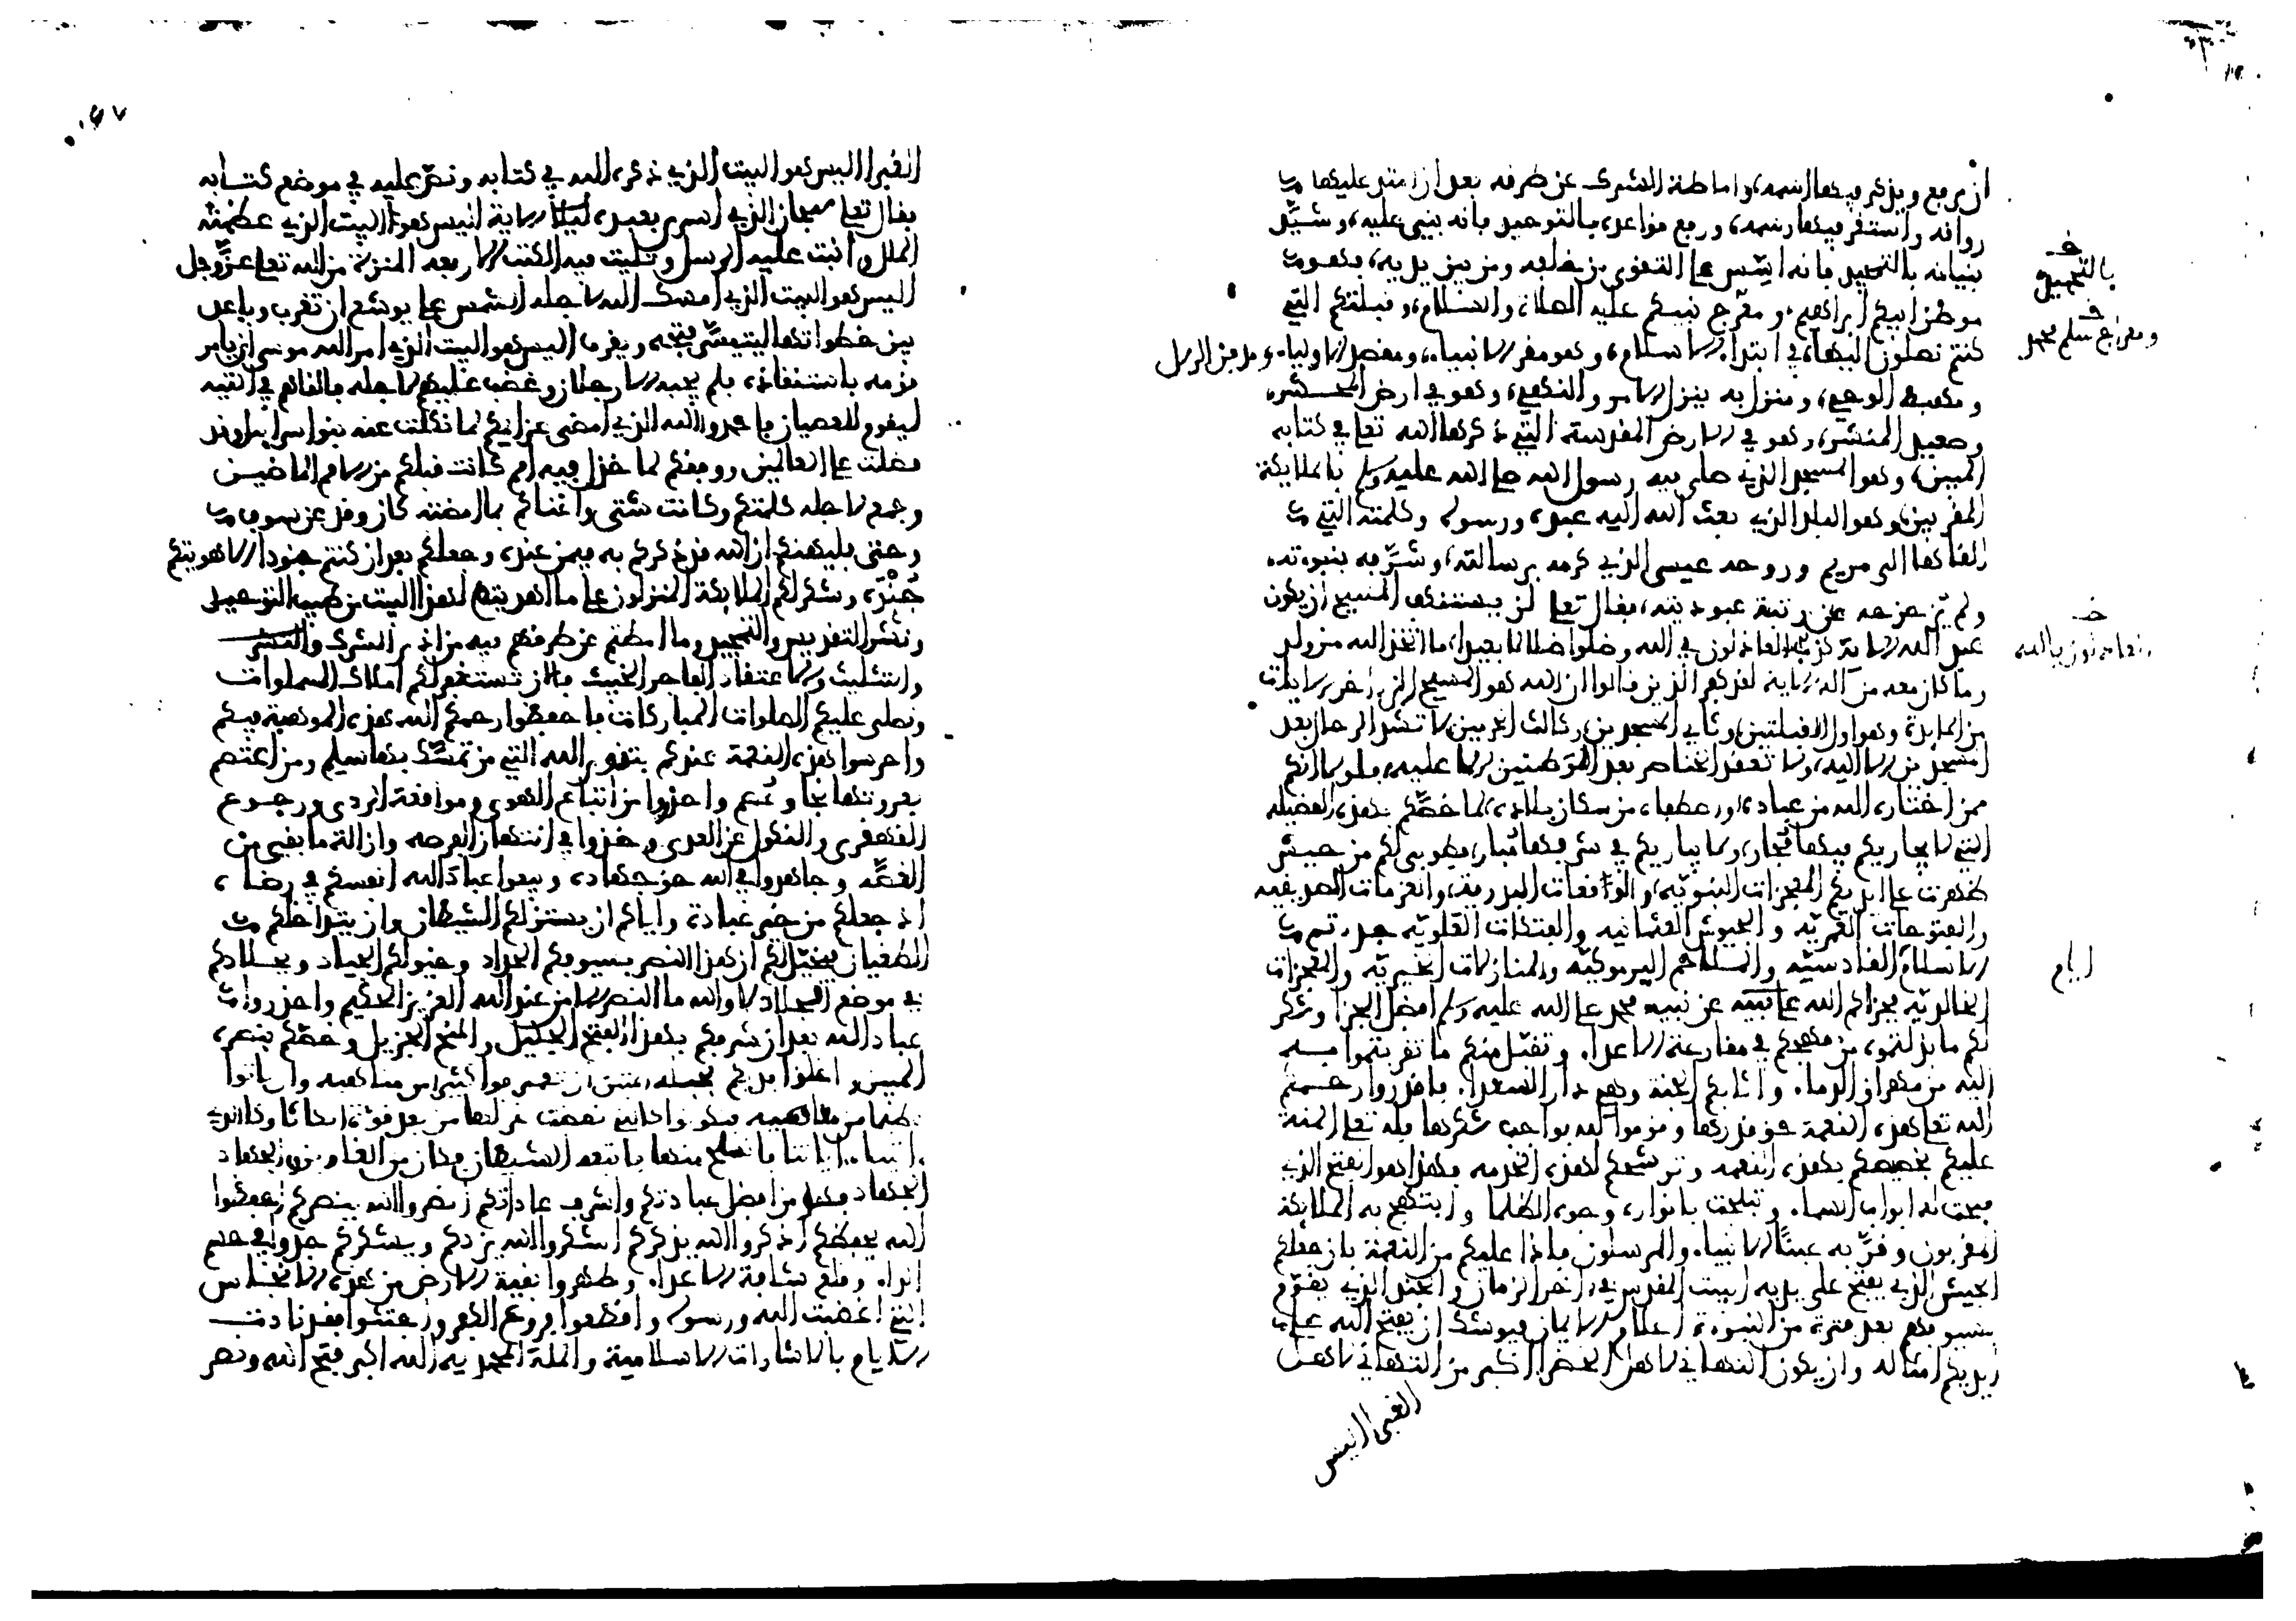 ان يرفع ويذكر فيها اسمه، واماطة الشرك عن طرفه بعد ان امتد عليها
رواقه واستقر فيها رسمه، ورفع قواعده بالتوحيد فانه بني عليه، وشيد
بنيانه بالتمجيد فانه اسس على التقوى من خلفه ومن بين يديه، فهو
موطن ابيكم ابراهيم، ومعرج نبيكم عليه الصلاة والسلام، وقبلتكم التي
كنتم تصلون اليها، في ابتداء الاسلام، وهو مقر الانبياء، ومقصد الاولياء، ومدفن الرسل
ومهبط الوحي، ومنزل به ينزل الامر والنهي، وهو في ارض المحشر،
وصعيد المنشر، وهو في الارض المقدسة التي ذكرها الله تعلى في كتابه
المبين، وهو المسجد الذي صلى فيه رسول الله صلى الله عليه وسلم بالملايكة
المقربين، وهو البلد الذي بعث الله اليه عبده ورسوله وكلمته التي
القاها الى مريم وروحه عيسى الذي كرمه برسالته، وشرفه بنبوته،
ولم يزحزحه عن رتبة عبوديته، فقال تعلى لن يستنكف المسيح ان يكون
عبد الله الاية كذب العادلون في الله وضلوا ضلالا بعيدا، ما اتخذ الله من ولد
وما كان معه من اله الاية لقد كفر الذين قالوا ان الله هو المسيح الى اخر الايات
من المايدة، وهو اول القبلتين، وثاني المسجدين، وثالث الحرمين، لا تشد الرحال بعد
المسجدين الا اليه، ولا تعقد الخناصر بعد الموطنين الا عليه، فلولا انكم
ممن اختاره الله من عباده، واصطفاه من سكان بلاده، لما خصكم بهذه الفضيلة
التي لا يجاريكم فيها مجار، ولا يباريكم في شرفها مبار، فطوبى لكم من جيش
ظهرت على ايديكم المعجزات النبوية، والواقعات البدرية، والعزمات الصديقية
والفتوحات العمرية والجيوش العثمانية والفتكات العلوية جددتم
للاسلام ايام القادسية والملاحم اليرموكية والمنازلات الخيبرية والهجمات
الخالدية فجزاكم الله عن نبيه محمد صلى الله عليه وسلم افضل الجزا وشكر
لكم ما بذلتموه من مهجكم في مقارعة الاعداء وتقبل منكم ما تقربتم به
اليه من مهراق الدماء واثابكم الجنة وهي دار السعداء فاقدروا رحمكم
الله تعلى هذه النعمة حق قدرها وقوموا لله بواجب شكرها فله تعلى المنة
عليكم بتخصيصكم بهذه النعمة وترشيحكم لهذه الخدمة فهذا هو الفتح الذي
فتحت له ابواب السماء وتبلجت بانواره وجوه الظلما وابتهج به الملايكة
المقربون وقر به عينا الانبياء والمرسلون فماذا عليكم من النعمة بان جعلكم
الجيش الذي يفتح على يديه البيت المقدس في اخر الزمان والجند الذي تقوم
بسيوفهم بعد فترة من النبوة اعلام الايمان فيوشك ان يفتح الله على
ايديكم امثاله وان يكون التهاني لاهل الخضرا اكثر من التهاني لاهل
الغبرا اليس
خ
بالتمجيد
خ
ومعراج
محمد
خ
العادلون بالله
ايام
الغبرا اليس هو البيت الذي ذكره الله في كتابه ونص عليه في موضع كتابه
فقال تعلى سبحان الذي اسرى بعبده ليلا الاية اليس هو البيت الذي عظمته
الملل واثنت عليه الرسل وتليت فيه الكتب الاربعة المنزلة من الله تعلى عز وجل
اليس هو البيت الذي امسك الله لاجله الشمس على يوشع ان تغرب وباعد
بين خطواتها ليتيسر فتحه ويقرب اليس هو البيت الذي امر الله موسى ان يامر
قومه باستنقاذه فلم يجبه الا رجلان وغضب عليهم لاجله فالقاهم في التيه
ليقوم للعصيان فاحمدوا الله الذي امضى عزايمكم لما نكلت عنه بنوا اسرايل وقد
فضلت على العالمين ووفقكم لما خذل فيه امم كانت قبلكم من الامم الماضين
وجمع لاجله كلمتكم وكانت شتى واغناكم بما امضته كان وقد عن سوف
وحتى فليهنكم ان الله قد ذكركم به فيمن عنده وجعلكم بعد ان كنتم جنودا لاهويتكم
جنده وشكر لكم الملايكة المنزلون على ما اهديتم لهذا البيت من طيب التوحيد
ونشر التقديس والتمجيد وما امطتم عن طرقهم فيه من اذى الشرك
والتثليث والاعتقاد الفاجر الخبيث فالان تستغفر لكم املاك السماوات
وتصلى عليكم الصلوات المباركات فاحفظوا رحمكم الله هذه الموهبة فيكم
واحرسوا هذه النعمة عندكم بتقوى الله التي من تمسك بها سلم ومن اعتصم
بعروتها نجا وعصم واحذروا من اتباع الهوى وموافقة الردى ورجوع
القهقرى والنكول عن العدى وخذوا في انتهاز الفرصة وازالة ما بقى من
الغصة وجاهدوا في الله حق جهاده وبيعوا عباد الله انفسكم في رضاه
اذ جعلكم من خير عباده واياكم ان يستزلكم الشيطان وان يتداخلكم
الطغيان فيخيل لكم ان هذا النصر بسيوفكم الحداد وخيولكم الجياد وبجلادكم
في موضع الجلاد لا والله ما النصر الا من عند الله العزيز الحكيم واحذروا
عباد الله بعد ان شرفكم بهذا الفتح الجليل والمنح الجزيل وخصكم بنصره
المبين واعلق ايديكم بحبله المتين ان تقترفوا كثيرا من مناهيه وان ياتوا
عظيما من معاصيه فتكونوا كالتي نقضت غزلها من بعد قوة انكاثا وكالذي
اتيناه اياتنا فانسلخ منها فاتبعه الشيطان فكان من الغاوين والجهاد
الجهاد فهو من افضل عبادتكم واشرف عاداتكم انصروا الله ينصركم احفظوا
الله يحفظكم اذكروا الله يذكركم اشكروا الله يزدكم ويشكركم جدوا في حسم
الداء وقلع شافة الاعداء وطهروا بقية الارض من هذه الانجاس
التي اغضبت الله ورسوله واقطعوا فروع الكفر واجتثوا فقد نادت
الايام بالثارات الاسلامية والملة المحمدية الله اكبر فتح الله ونصر